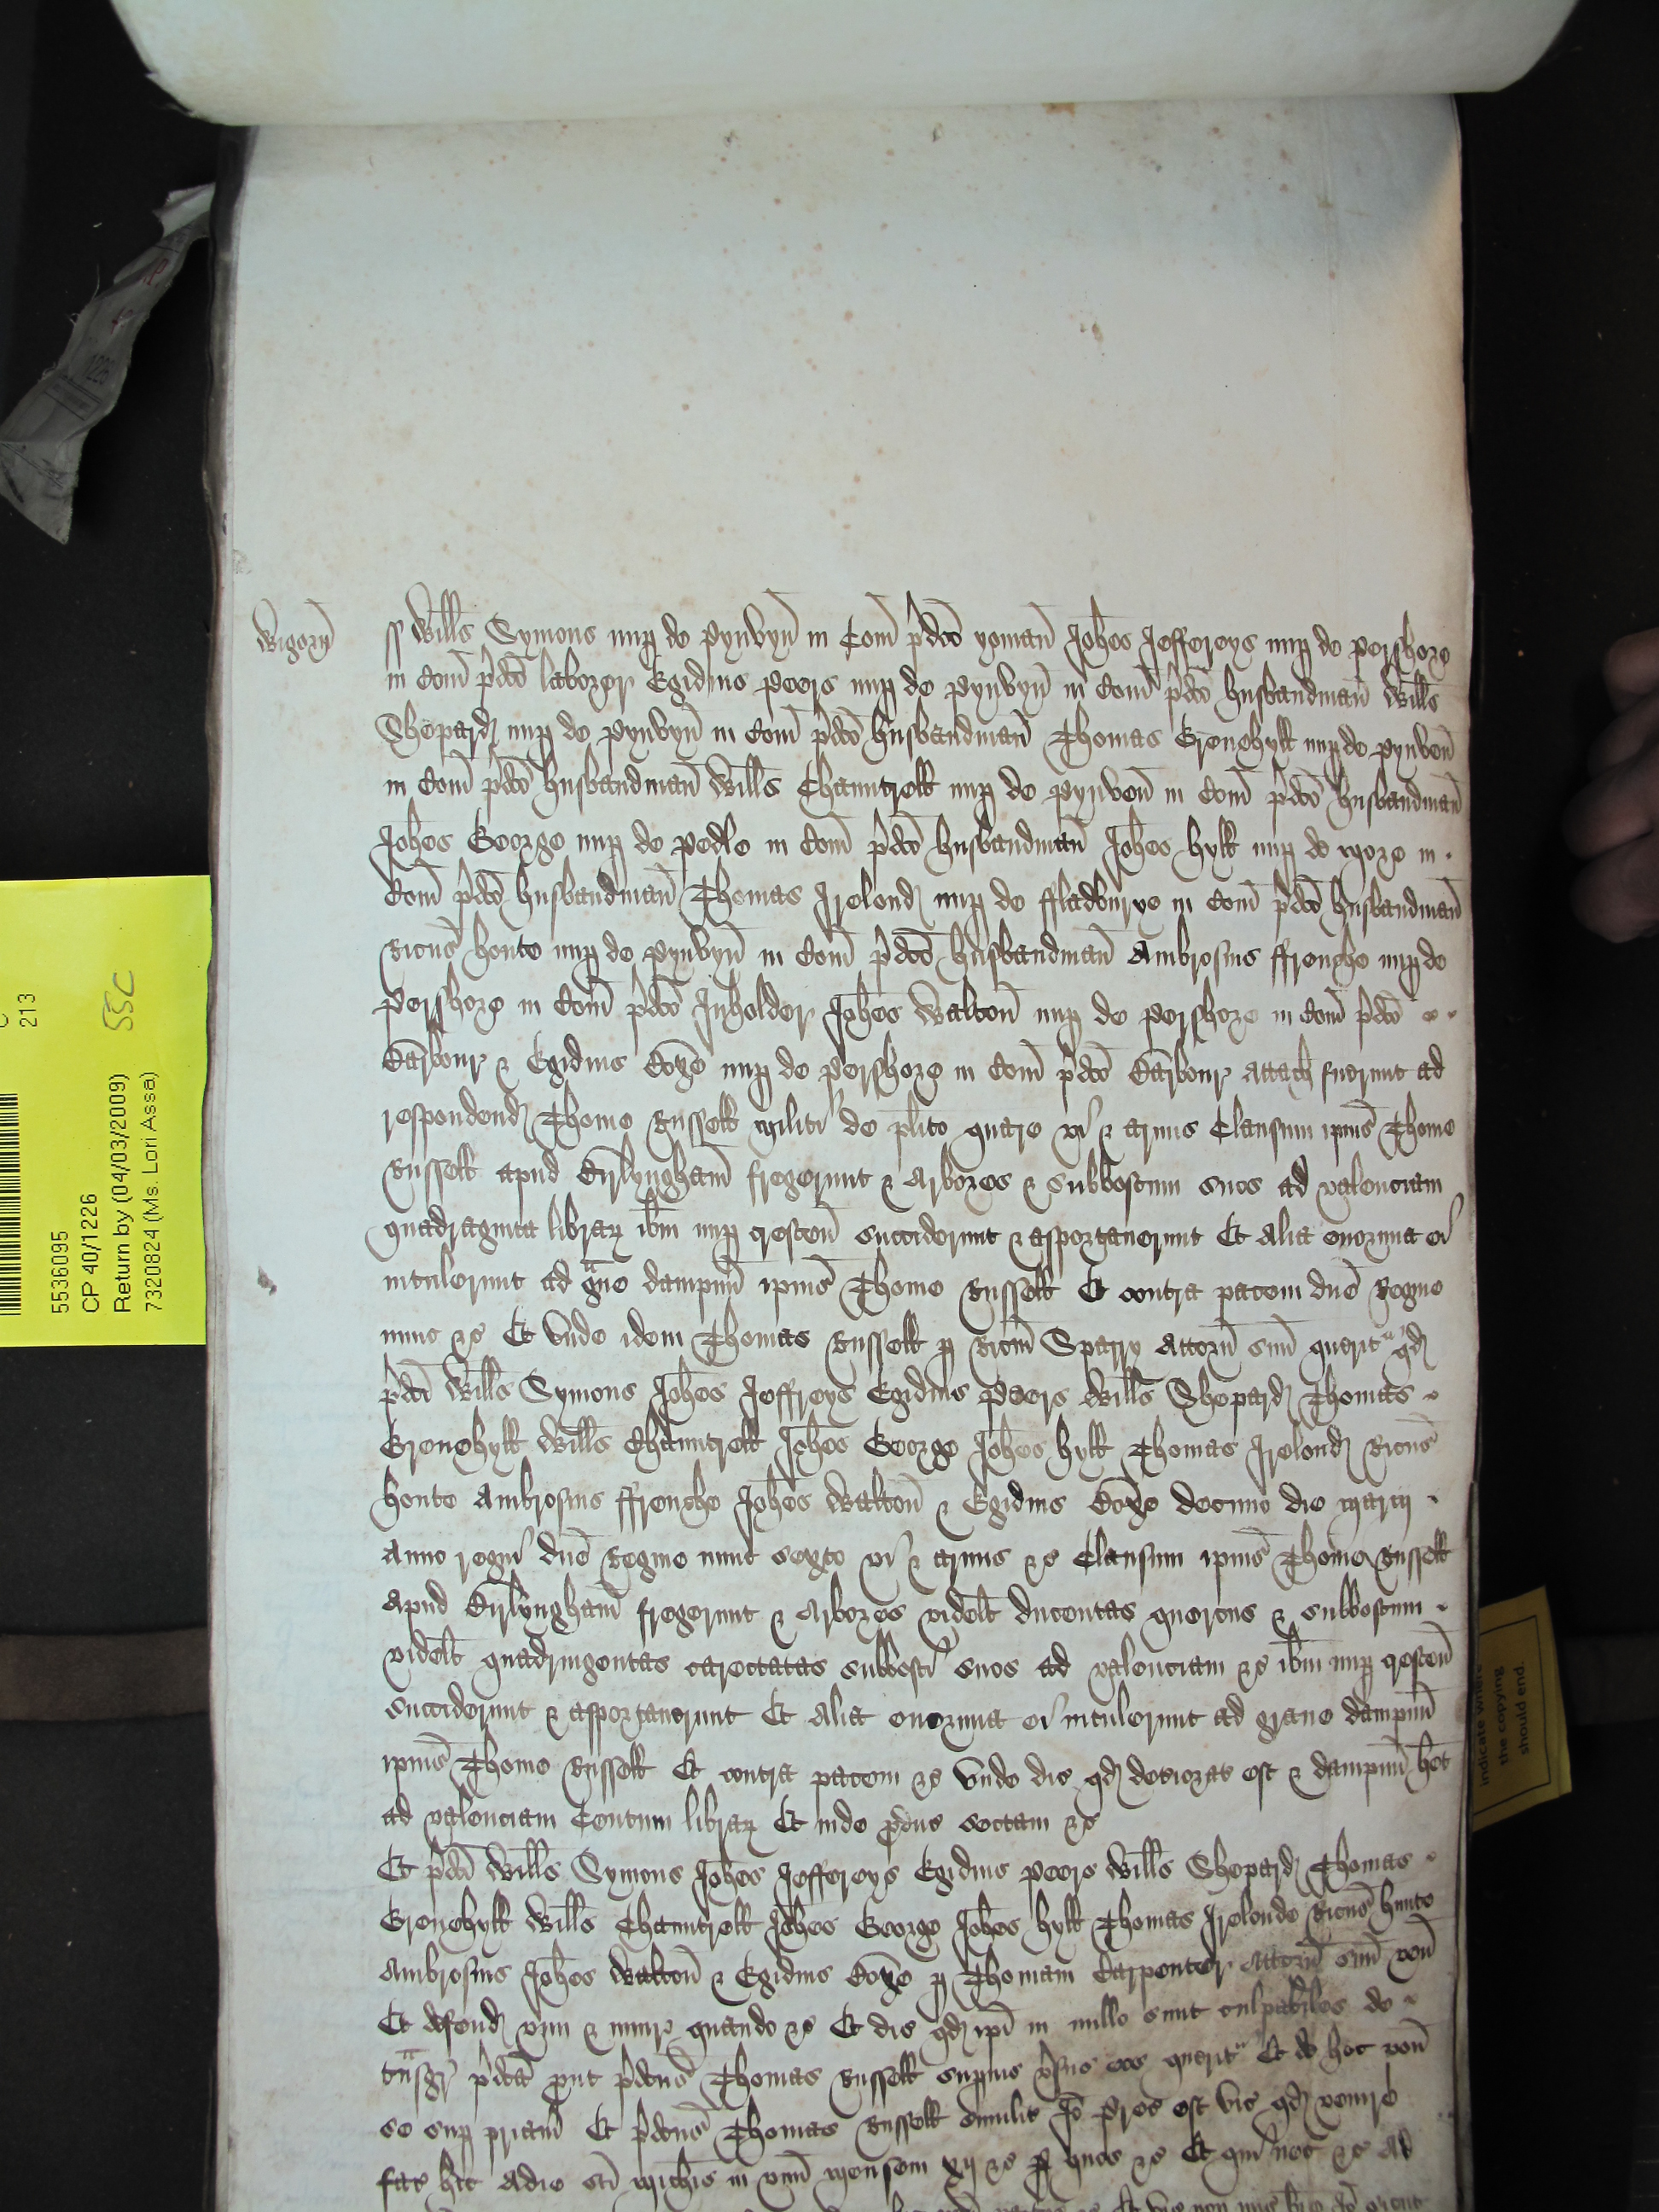 Wigorn̄
ss Wills Symons nup de Pynvyn̄ in Com̄ p̄dc̄o yoman̄ Joh̄es Jeffereys nup de Pershore
in Com̄ p̄dc̄o laborer Egidius Peers nup de Pynvyn̄ in Com̄ p̄dc̄o husbandman̄ Wills
Shepard nup de Pynvyn̄ in Com̄ p̄dc̄o husbandman̄ Thomas Grenehyll nup de Pynven̄
in Com̄ p̄dc̄o husbandman̄ Wills Chauntrell nup de Pynven̄ in Com̄ p̄dc̄o husbandman̄
Joh̄es George nup de Pedle in Com̄ p̄dc̄o husbandman̄ Joh̄es Hyll nup de More in
Com̄ p̄dc̄o husbandman̄ Thomas Irelond nup de ffladburye in Com̄ p̄dc̄o husbandman̄
Ricus Honte nup de Pynvyn̄ in Com̄ p̄dc̄o husbandman̄ Ambrosius ffrenche nup de
Pershore in Com̄ p̄dc̄o Inholder Joh̄es Walton̄ nup de Pershore in Com̄ p̄dc̄o
Barbour & Egidius Coxe nup de Pershore in Com̄ p̄dc̄o Barbour attach fuerunt ad
respondend Thome Russell militi de plito quare vi & armis Clausum ipius Thome
Russell apud Byrlyngham̄ fregerunt & arbores & subboscum suos ad valenciam
quadraginta librar ibm nup crescen̄ succiderunt & asportaverunt Et alia enormia ei
intulerunt ad g̊ue dampnū ipius Thome Russell Et contra pacem dn̄e Regine
nunc &c Et unde idem Thomas Russell p Ricm̄ Sparry attorn̄ suū querit qd
p̄dc̄i Wills Symons Joh̄es Jeffreys Egidius Peers Wills Shepard Thomas
Grenehyll Wills Chauntrell Joh̄es George Joh̄es Hyll Thomas Irelond Ricus
Honte Ambrosius ffrenche Joh̄es Walton̄ & Egidius Coxe decimo die Marcij
Anno regni dn̄e Regine nunc sexto vi & armis &c Clausum ipius Thome Russell
apud Byrlyngham̄ fregerunt & arbores videlt ducentas quercus & subboscum
videlt quadringentas carectatas subbosci suos ad valenciam &c ibm nup crescen̄
succiderunt & asportaverunt Et alia enormia ei intulerunt ad grave dampnū
ipius Thome Russell Et contra pacem &c Unde dic qd deteriorat est & dampnū het
ad valenciam Centum librar Et inde p̄duc sectam &c
Et p̄dc̄i Wills Symons Joh̄es Jeffereys Egidius Peers Wills Shepard Thomas
Grenehyll Wills Chauntrell Joh̄es George Joh̄es Hyll Thomas Irelonde Ricus Hunte
Ambrosius Joh̄es Walton̄ & Egidius Coxe p Thomam Carpenter attorn̄ suū ven̄
Et defend vim & iniur quando &c Et dic qd ip̄i in nullo sunt culpabiles de
tn̊sgr p̄dc̄a put p̄dc̄us Thomas Russell supius v̄sus eos querit Et de hoc pon̄
se sup priam̄ Et p̄dc̄us Thomas Russell similit Io p̄c est vic qd venire
fac hic adie sc̄i Mich̄is in unū mensem xij &c p quos &c Et qui nec &c ad
5536095
CP 40/1226
Return by (04/03/2009)
7320824 (Ms. Lori Assa)
213
SSC
Indicate where
the copying
should end.